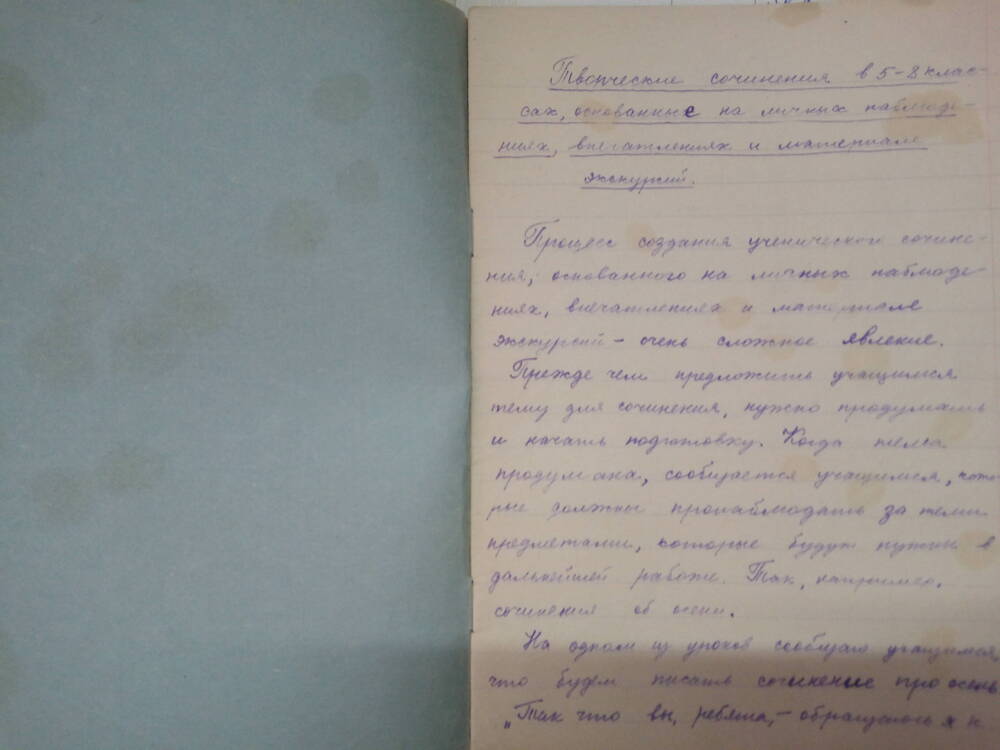 Творческие сочинения в 5-8 клас-
сах, основанные на личных наблюде-
ниях, впечатлениях и материале
экскурсий.
Процесс создания ученического сочине-
ния, основанного на личных наблюде-
ниях, впечатлениях и материале
экскурсий - очень сложное явление.
Прежде чем предложить учащимся
тему для сочинения, нужно продумать
и начать подготовку. Когда тема
продумана, сообщается учащимся, кото-
рые должны пронаблюдать за теми
предметами, которые будут нужны в
дальнейшей работе. Так, например,
сочинения об осени.
На одном из уроков сообщаю учащимся,
что будем писать сочинение про осень
„Так что вы, ребята, - обращаюсь я к